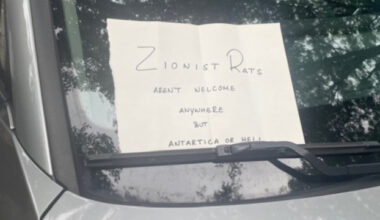 ZIONIST RATS
ARENT WELCOME
ANYWHERE
BUT
ANTARTICA OR HELL